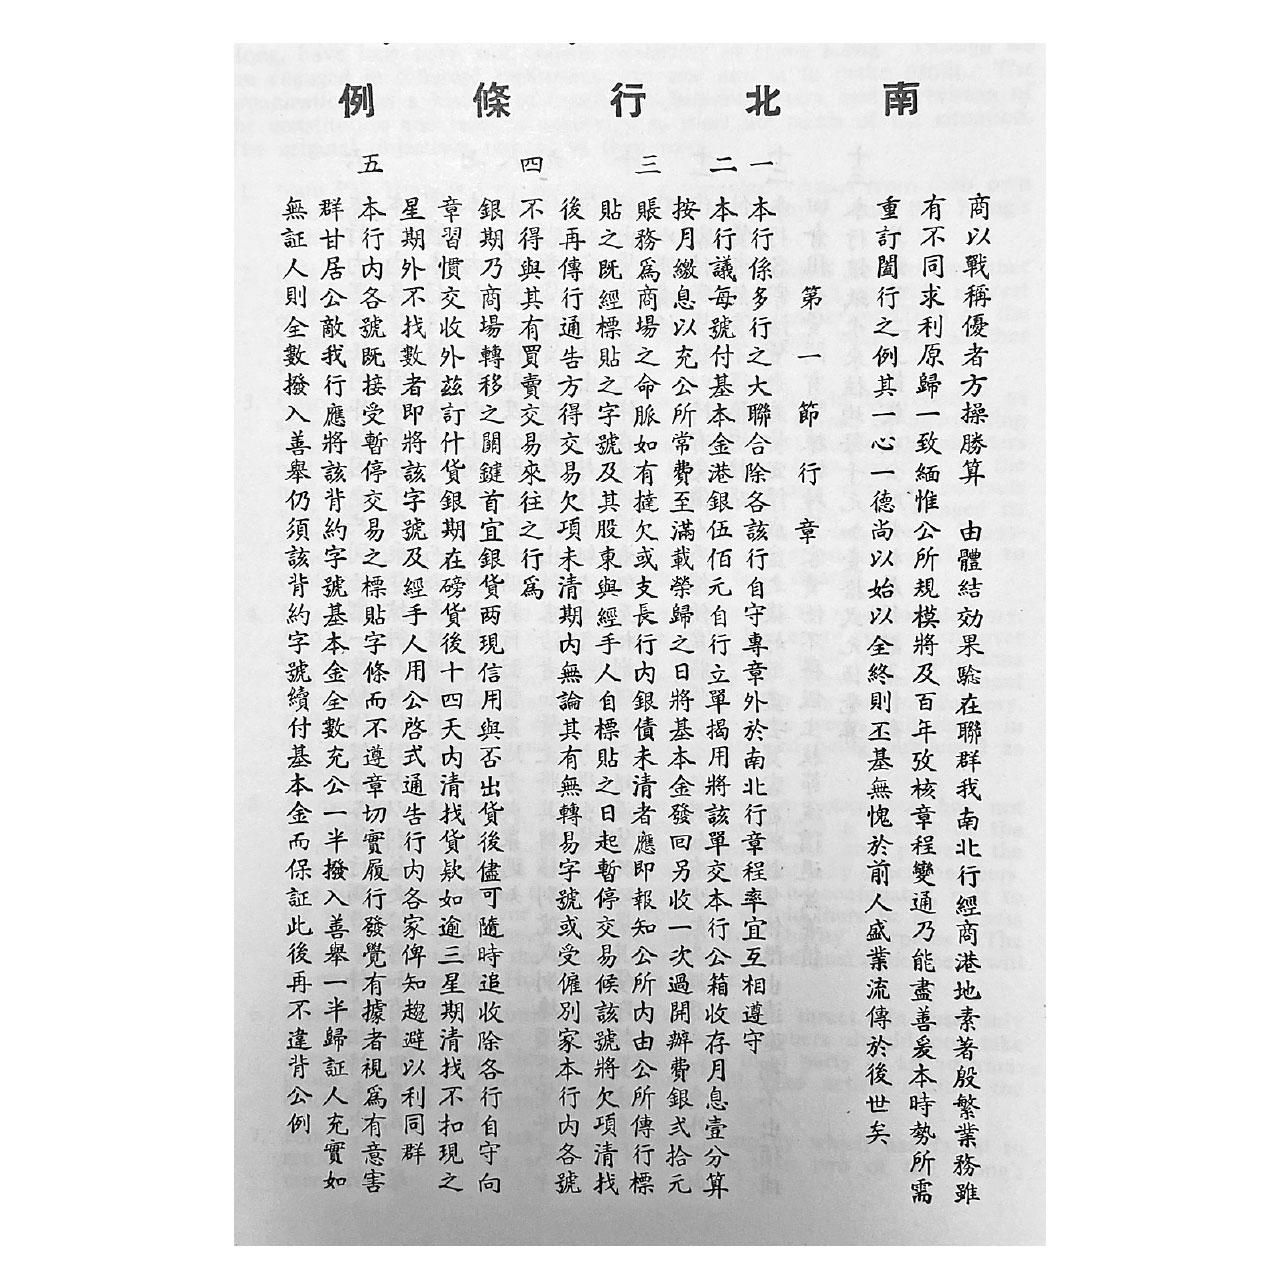 南北行條例
商以戰稱優者方操勝算　由體結効果驗在聯群我南北行經商港地素著殷繁業務雖
有不同求利原歸一致緬惟公所規模將及百年攷核章程變通乃能盡善爰本時勢所需
重訂闔行之例其一心一德尚以始以全終則丕基無愧於前人盛業流傳於後世矣
第一節行章
一　本行係多行之大聯合除各該行自守專章外於南北行章程率宜互相遵守
二　本行議每號付基本金港銀伍佰元自行立單揭用將該單交本行公箱收存月息壹分算
按月繳息以充公所常費至滿載榮歸之日將基本金發回另收一次過開辦費銀弍拾元
三　賬務爲商場之命脈如有撻欠或支長行內銀債未清者應即報知公所內由公所傳行標
貼之既經標貼之字號及其股東與經手人自標貼之日起暫停交易候該號將欠項清找
後再傳行通告方得交易欠項未清期內無論其有無轉易字號或受僱別家本行內各號
不得與其有買賣交易來往之行爲
四　銀期乃商場轉移之關鍵首宜銀貨两現信用與否出貨後儘可隨時追收除各行自守向
章習慣交收外茲訂什貨銀期在磅貨後十四天內清找貨欵如逾三星期清找不扣現之
星期外不找數者即將該字號及經手人用公啓式通告行內各家俾知趨避以利同群
五　本行內各號既接受暫停交易之標貼字條而不遵章切實履行發覺有據者視爲有意害
群甘居公敵我行應將該背約字號基本金全數充公一半撥入善舉一半歸証人充賞如
無証人則全數撥入善舉仍須該背約字號續付基本金而保証此後再不違背公例